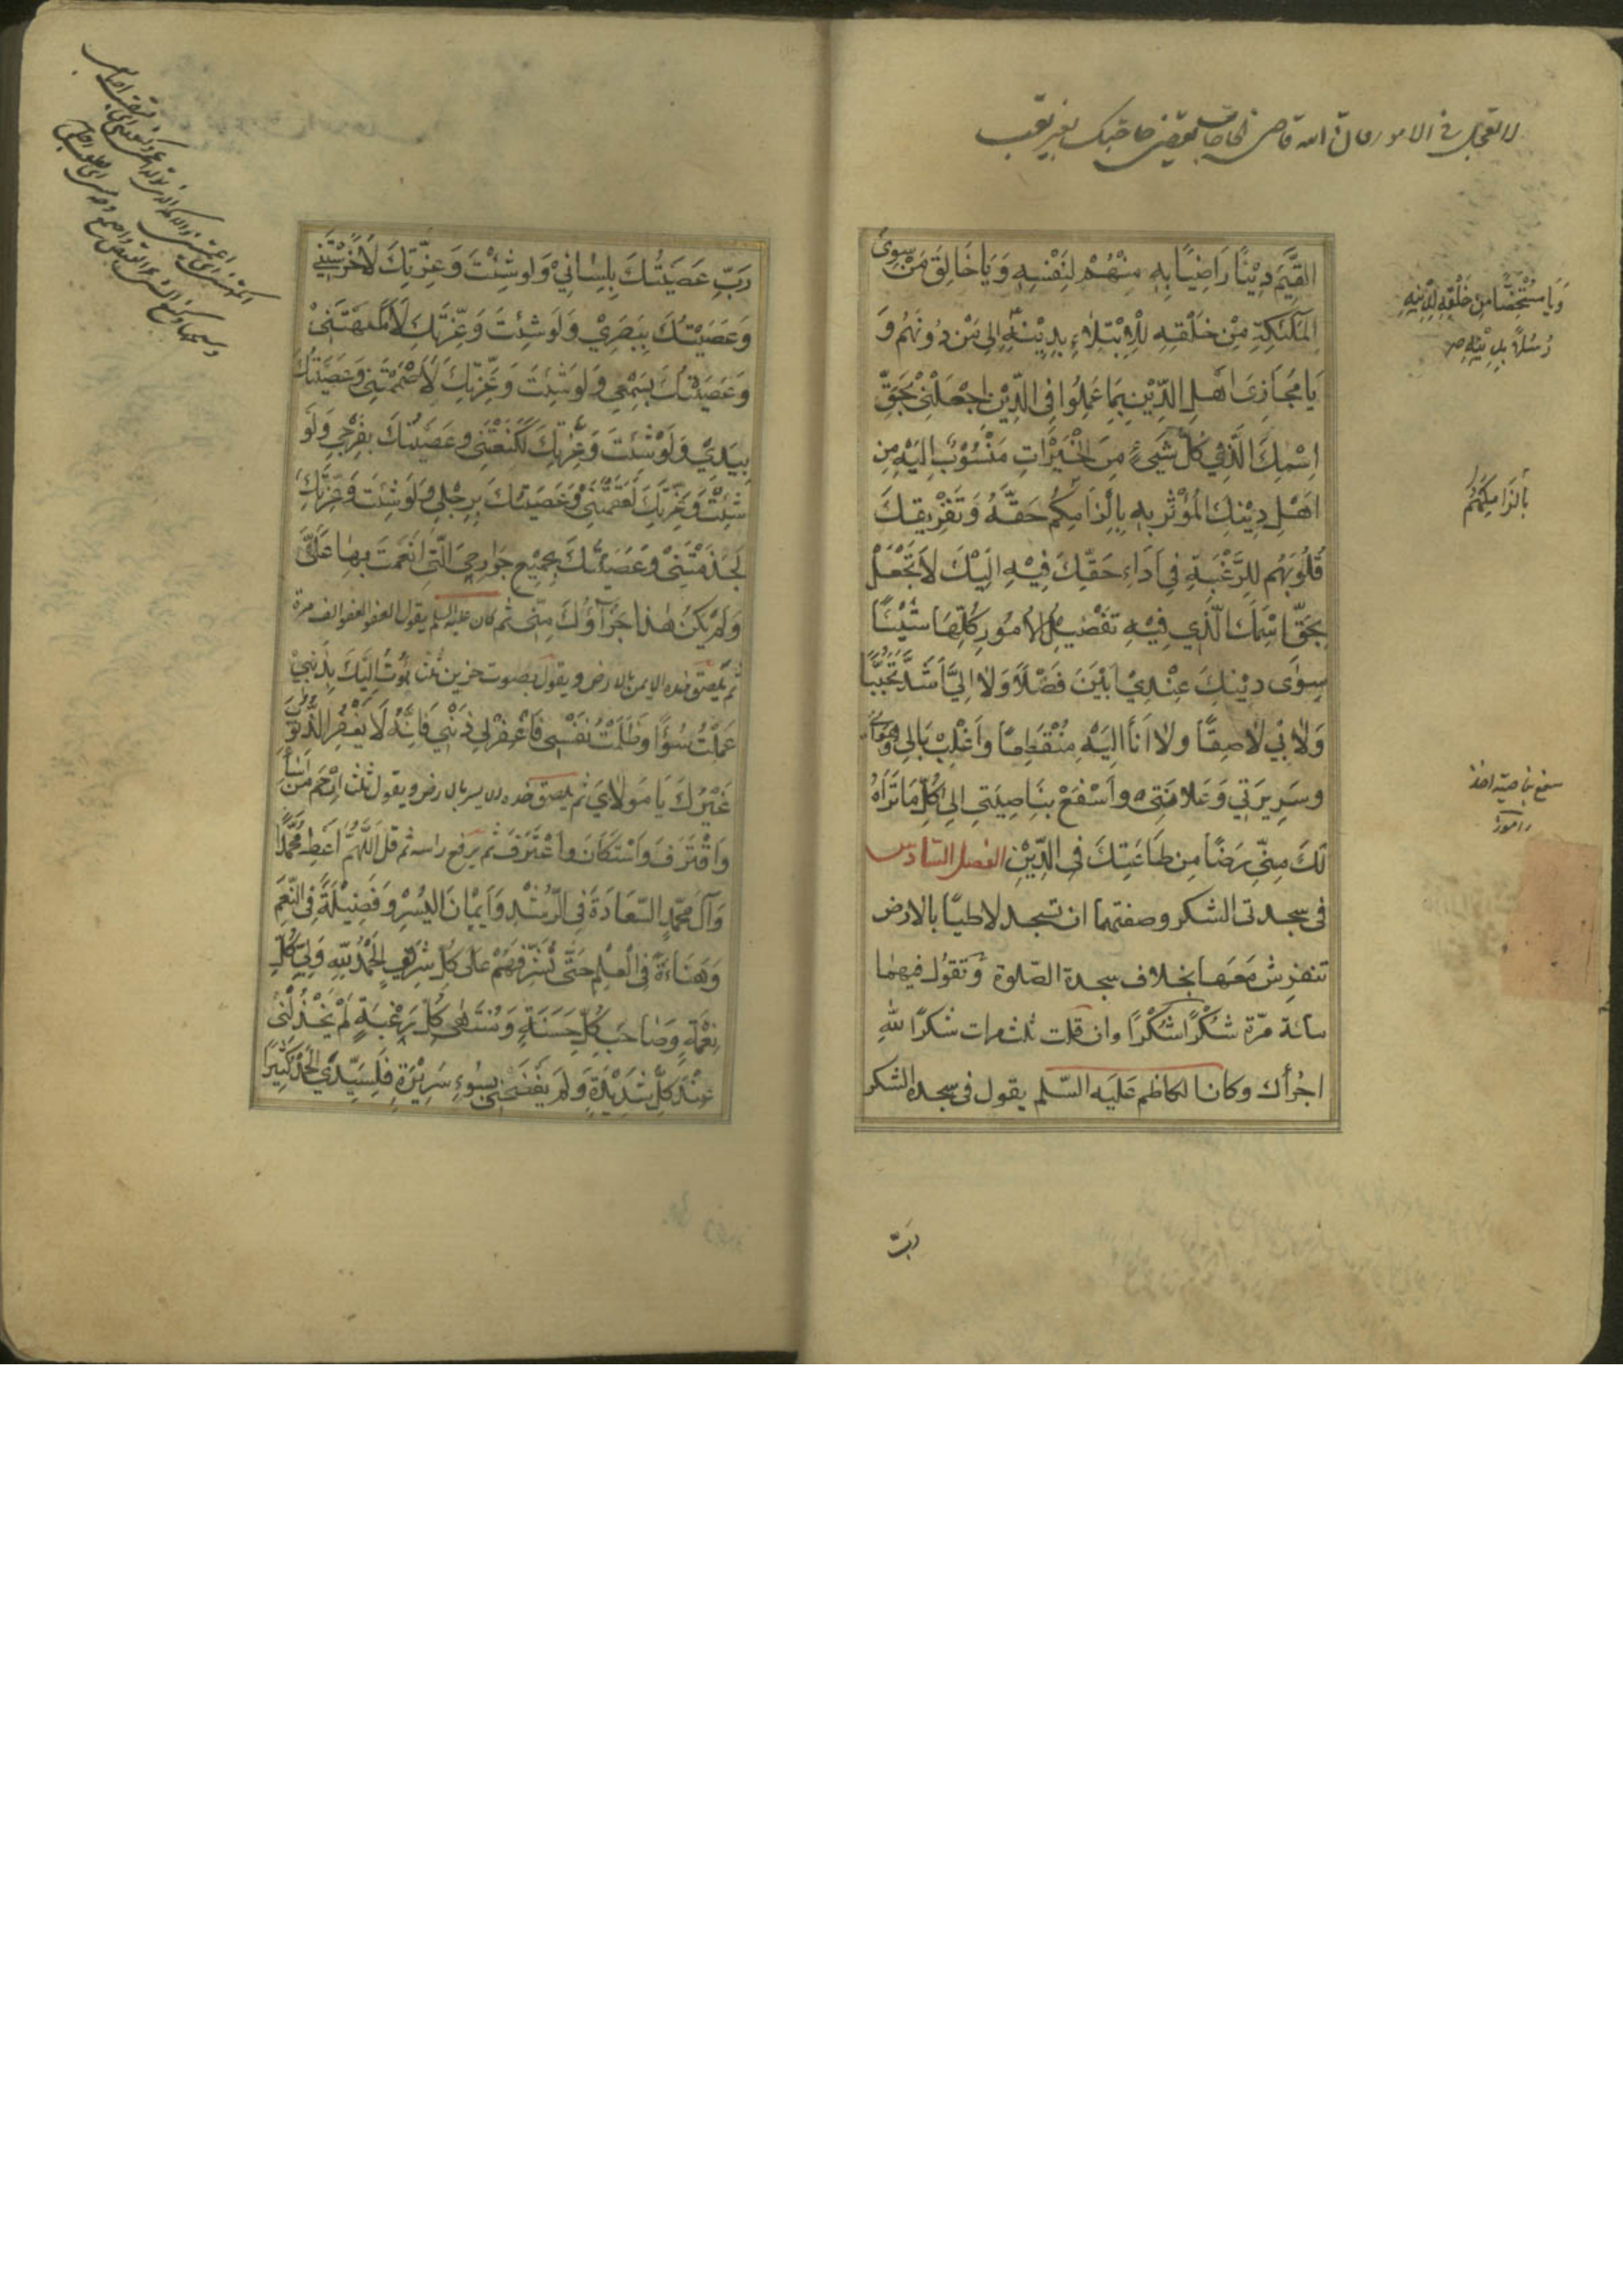 لا تعجل في الامور فان الله قاضي الحاجات يقضي حاجتك بغير تعب
القَيِّمَ دِيْنًا رَاضِيًا بِهِ مِنْهُمْ لِنَفْسِهِ وَيَا خَالِقَ مَنْ سِوَى
المَلٰئكَةِ مِنْ خَلْقِهِ لِلْاِبْتِلاءِ بِدِيْنِهِ اِلى مَنْ دُونَهُم وَ
يَا مُجَازِىَ اَهْلِ الدِّيْنِ بِمَا عَمِلُوا فِى الدِّيْنِ اِجْعَلْنِىْ بِحَقِّ
اِسْمِكَ الَّذِي كُلّ شَيْءٍ مِنَ الْخَيْرَاتِ مَنْسُوْبٌ اِلَيْهِ مِن
اَهْلِ دِيْنِكَ المُؤْثَرِ بِهِ بِاِلْزَامِكُم حَقَّهُ وَتَفْرِيغِكَ
قُلُوبَهُم لِلرَّغْبَةِ فِي اَدَاءِ حَقِّكَ فِيْهِ اِلَيْكَ لاَ تَجْعَلْ
بِحَقِّ اسْمِكَ الَّذِي فِيْهِ تَفْصِيْلُ الأُمُورِ كُلِّهَا شَيْئًا
سِوٰى دِيْنِكَ عِنْدِيْ اَبْيَنَ فَضْلًا وَلاَ اِلَيَّ اَشَدَّ تَحَبُّبًا
وَلاٰ بِي لاَصِقًا وَلاٰ اَنَا اِلَيْهِ مُنْقَطِعًا وَاَغْلِبْ بَالِي وَهَوَايَ
وسَرِيرَتِي وَعَلانِيَتِى وَاسْفَعْ بِنَاصِيَتِي اِلىٰ كُلِّ مَا تَرَاهُ
لَكَ مِنِّي رِضًا مِن طَاعَتِكَ فِى الدِّيْنِ الفصل السّادس
فى سجدتى الشكر وصفتهما ان تسجد لاطيًا بالارض
تنفرش معهما بخلاف سجدة الصّلوة وتقول فيهما
مائة مرّة شُكْرًا شُكْرًا وان قلت ثلث مرات شكرًا للّٰهِ
اجزأك وكان الكاظم عَليَه السّلم يقول فى سجدة الشكر
وَيا مُسْتَخِصًّا مِن خَلْقِهِ لِدِيْنِهِ
رُسُلاً بِدِيْنِهِ
بِاِلْزَامِكَهُمْ
سفع بناصيته اخذ
رَبِّ
رَبِّ عَصَيْتُكَ بِلِسٰانِيْ وَلَو شِئْتَ وَعِزَّتِكَ لَاَخْرَسْتَنِي
وَعَصَيْتُكَ بِبَصَرِيْ وَلَو شِئتَ وَعِزَّتِكِ لَاَكْمَهْتَنِيْ
وَعَصَيْتُكَ بِسَمْعِي وَلَو شِئتَ وَعِزَّتِكَ لَاَصْمَمْتَنِى وَعَصَيْتُكَ
بِيَدِيْ وَلَوْ شِئتَ وَعِزَّتِكَ لَكَنَعْتَنِى وعَصَيْتُكَ بِفَرْجِي وَلَو
شِئتْ وَعِزَّتِكَ لَعَقَمْتَنِيْ وَعَصَيْتُكَ بِرِجْلِي وَلَو شِئتَ وَعِزَّتِكَ
لَجَذَمْتَنِىْ وَعَصَيْتُكَ بِجَمِيْعِ جَوَارِحِي الَّتِى اَنْعَمْتَ بِهٰا عَلَىَّ
وَلَمْ يَكُنْ هٰذا جَزَاؤُكَ مِنِّى ثُم كان عليه السلم يقول العفو العفو الف مرة
ثم يلصق خده الايمن بالارض ويقول بصوت حزين ثلث بُؤْتُ اِلَيْكَ بِذَنْبِيْ
عَمِلْتُ سُوْءًا وظَلَمْتُ نَفْسِى فَاغْفِرْ لِي ذَنْبِي فَاِنَّهُ لَا يَغْفِرُ الذُّنُوْبَ
غَيْرُكَ يَا مَوْلاٰيَ ثم يلصق خده الايسر بالارض ويقول ثلث اِرْحَمْ مَنْ اَسَأَ
وَاقْتَرَفَ وَاسْتَكَانَ وَاعْتَرَفَ ثم يرفع راسه ثم قل اَللّٰهُمَّ اَعْطِ مُحَمَّدًا
وَآلَ مُحَمَّدٍ السَّعَادَةَ فِى الرُّشْدِ وَاِيْمٰانَ اليُسْرِ وَفَضِيْلَةً فِى النِّعَمِ
وَهَنَاءَةً فِى الْعِلْمِ حَتّٰى تُشَرِّفَهُمْ عَلى كُلِّ شَرِيْفٍ الْحَمْدُ لِلّٰهِ وَلِيِّ كُلِّ
نِعْمَةٍ وَصَاحِبِ كُلِّ حَسَنَةٍ وَمُنْتَهٰى كُلِّ رَغْبَةٍ لَمْ يَخْذُلْنِى
عِنْدَ كُلِّ شَدِيْدَةٍ وَلَمْ يَفْضَحْنِى بِسُوْءِ سَرِيْرَةٍ فَلِسَيِّدِي الْحَمْدُ كَثِيْرًا